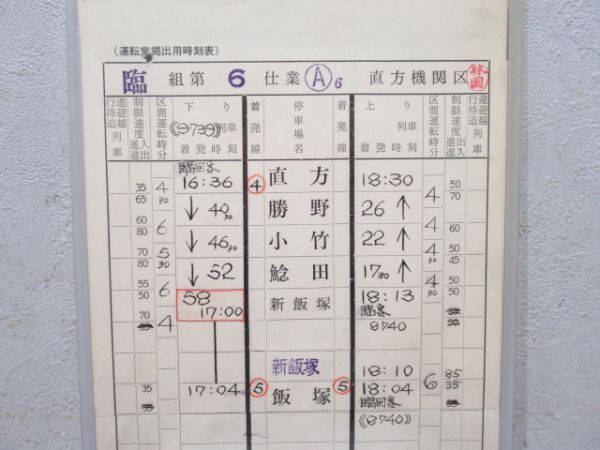 (運転室掲出用時刻表)
臨 組第 6 仕業 Ⓐ6 直方機関区
違避越 行待追 列車
制限速度 入出 進進
区間運転時分
下り 列車 着発時刻
着発線
停車場名
着発線
上り 列車 着発時刻
区間運転時分
制限速度 入出 進進
違避越 行待追 列車
臨回客
35 4 16:36 ④ 直方 18:30 50
65 30 70
60 ↓ 40 30 勝野 26 ↑ 4
80 6 60
70 ↓ 46 30 小竹 22 ↑ 4 50
80 5 30 30 45
55 ↓ 52 鯰田 17 30 ↑ 4 50
50 6 58 新飯塚 18:13 30 50
70 4 17:00 臨客
8740
新飯塚 18:10 85
35 17:04 ⑤ 飯塚 ⑤ 18:04 6 35
臨回客
((8740))